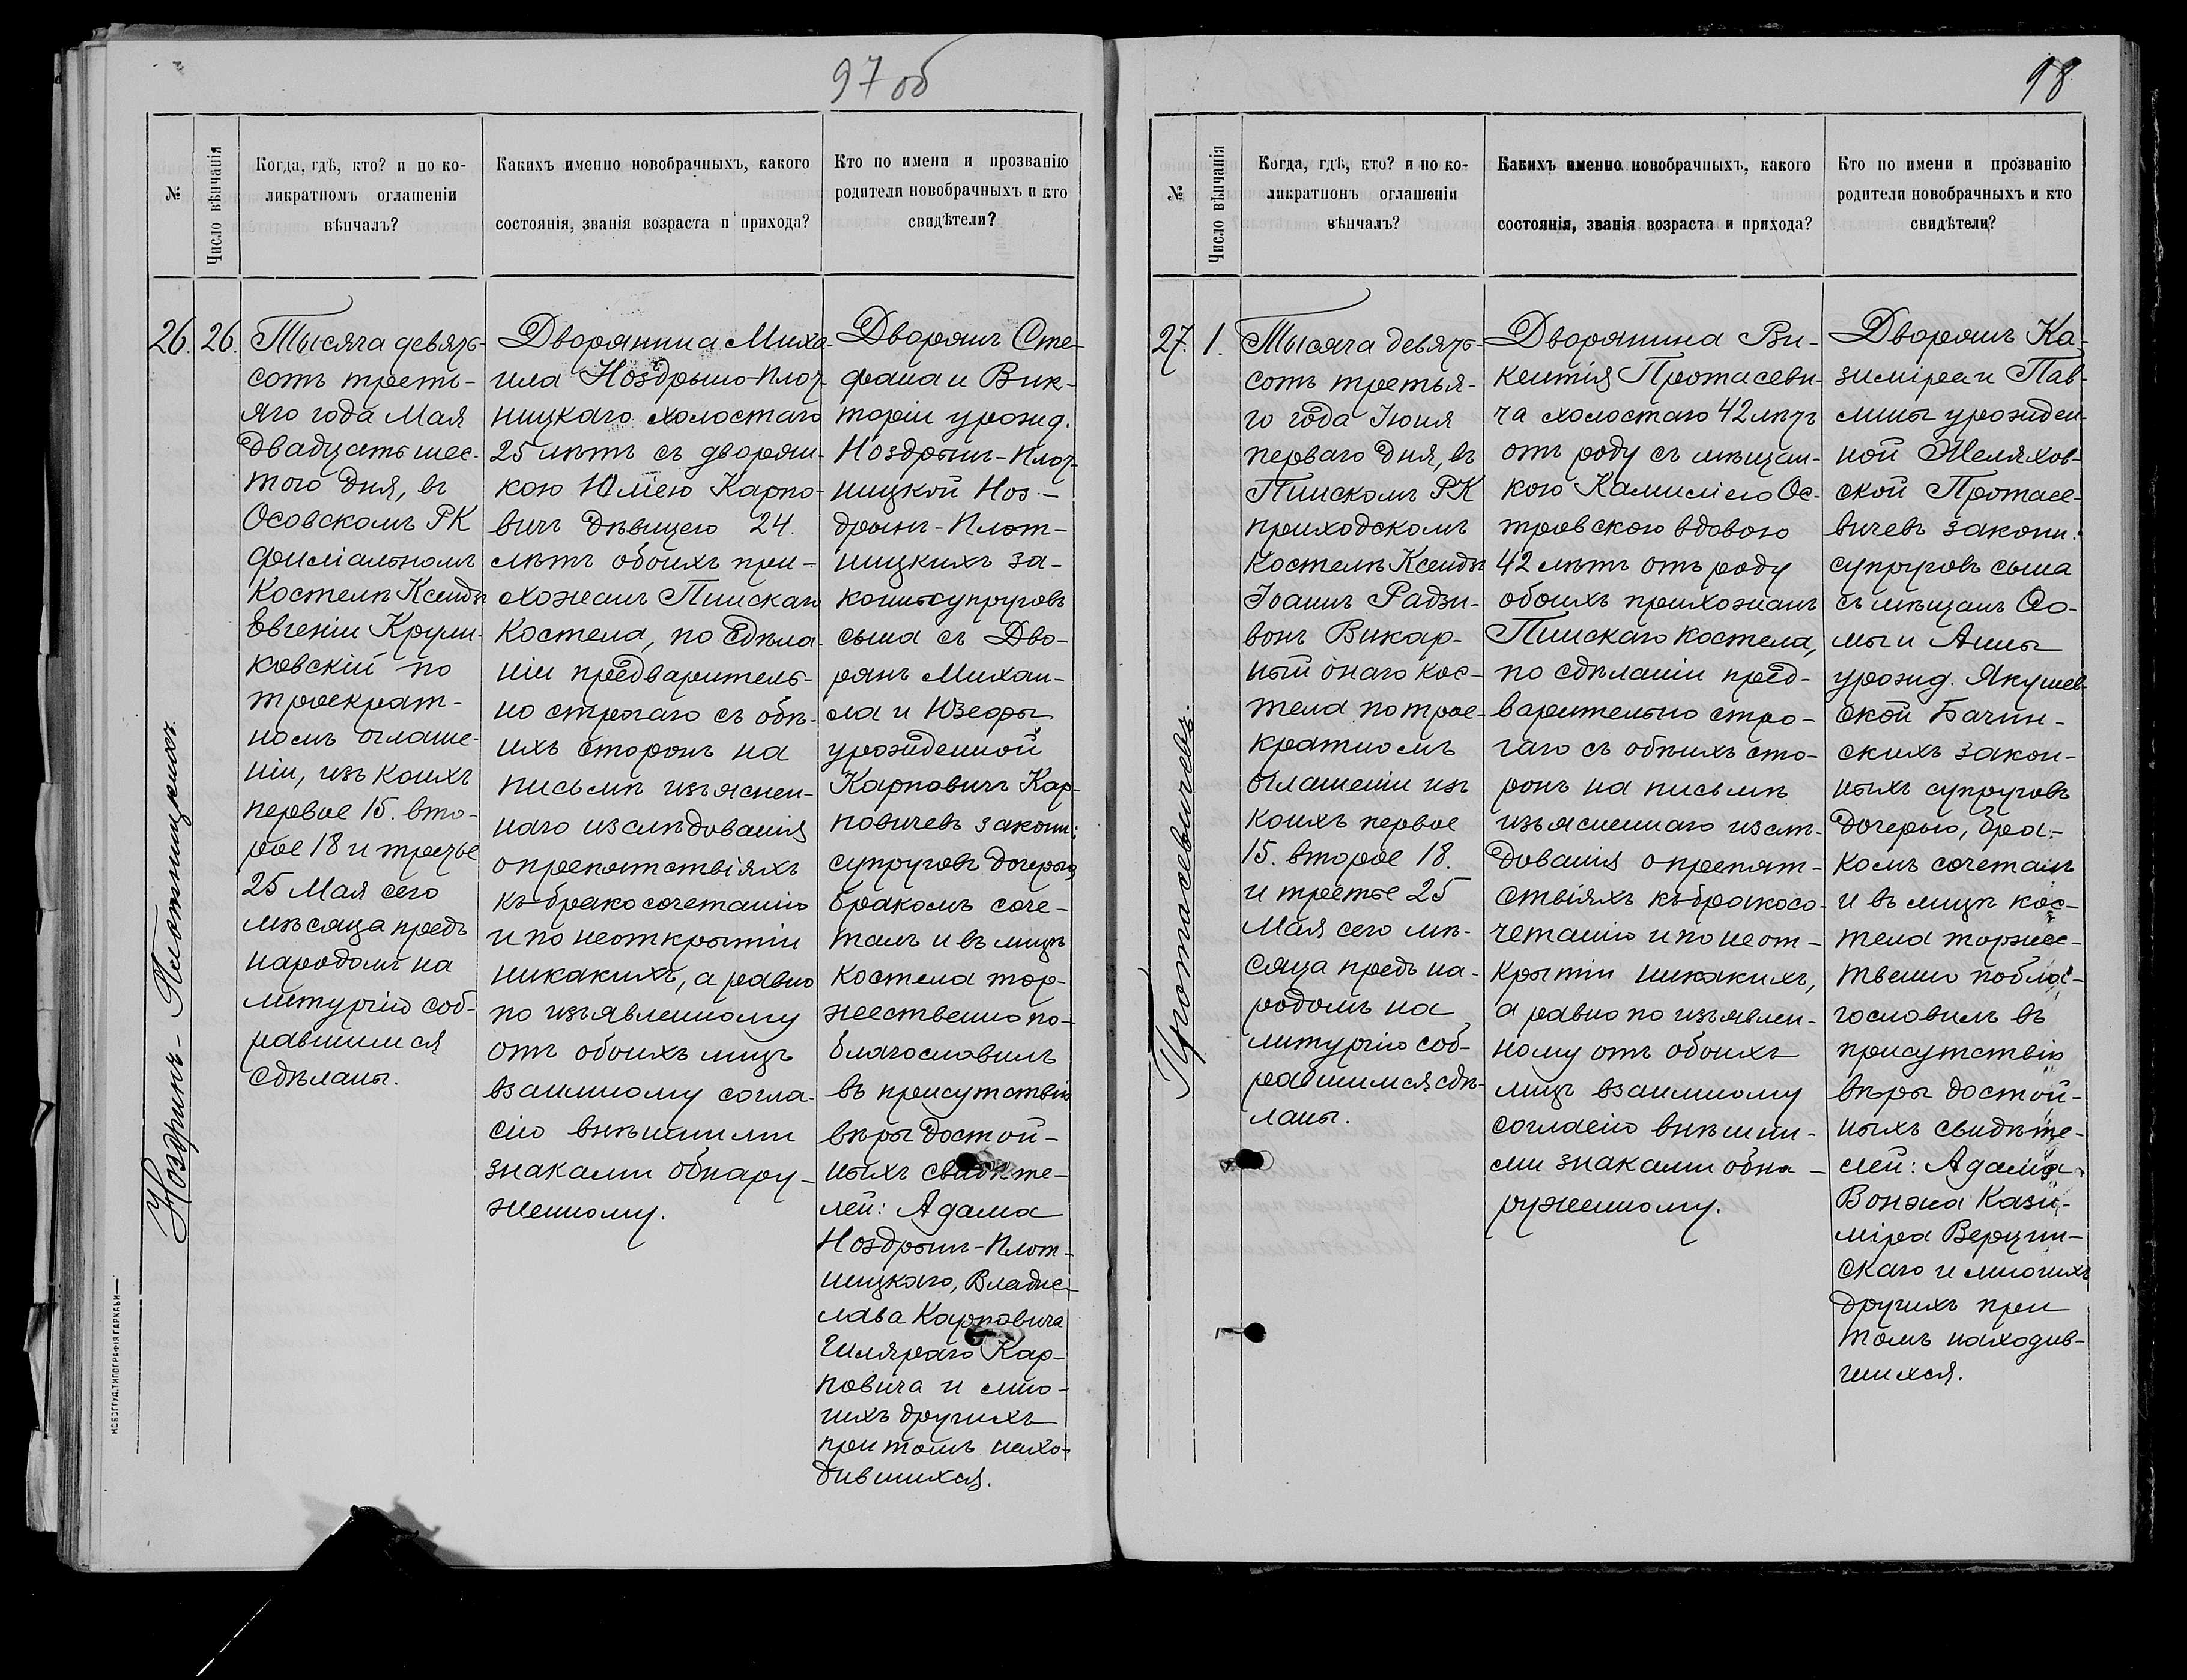 97 об
№
Число вѣнчанія
Когда, гдѣ, кто? и по ко-
ликратномъ оглашеніи
вѣнчалъ?
Какихъ именно новобрачныхъ, какого
состоянія, званія возраста и прихода?
Кто по имени и прозванію
родители новобрачныхъ и кто
свидѣтели?
Ноздринъ-Плотницкихъ.
26.
26.
Тысяча девять-
сотъ треть-
яго года Мая
двадцать шес-
того дня, въ
Осовскомъ РК
филіальномъ
Костелѣ Ксендзъ
Евгеній Крули-
ковскій по
троекрат-
номъ оглаше-
ніи, изъ коихъ
первое 15. вто-
рое 18 и третье
25 Мая сего
мѣсяца предъ
народомъ на
литургію соб-
равшимся
сдѣланы.
Дворянина Миха-
ила Ноздрыно-Плот-
ницкаго холостаго
25 лѣтъ съ дворян-
кою Юліею Карпо-
вичъ дѣвицею 24.
лѣтъ обоихъ при-
хожанъ Пинскаго
Костела, по сдѣла-
ніи предваритель-
но строгаго съ обѣ-
ихъ сторонъ на
письмѣ изъяснен-
наго изслѣдованія
о препятствіяхъ
къ бракосочетанію
и по неоткрытіи
никакихъ, а равно
по изъявленному
отъ обоихъ лицъ
взаимному согла-
сію внѣшними
знаками обнару-
женному.
Дворянъ Сте-
фана и Вик-
торіи урожд.
Ноздрынъ-Плот-
ницкой Ноз-
дрынъ-Плот-
ницкихъ за-
кон. супруговъ
сына съ Дво-
рянъ Михаи-
ла и Юзефы
урожденной
Карповичъ Кар-
повичевъ законн:
супруговъ дочерью
бракомъ соче-
талъ и въ лицѣ
костела тор-
жественно по-
благословилъ
въ присутствіи
вѣры достой-
ныхъ свидѣте-
лей: Адама
Ноздрынъ-Плот-
ницкаго, Владис-
лава Карповича
Гиляраго Кар-
повича и мно-
гихъ другихъ
при томъ нахо-
дившихся.
НОВОГРУД. ТИПОГРАФІЯ ГАРКАВИ
98
№
Число вѣнчанія
Когда, гдѣ, кто? и по ко-
ликратномъ оглашеніи
вѣнчалъ?
Какихъ именно новобрачныхъ, какого
состоянія, званія возраста и прихода?
Кто по имени и прозванію
родители новобрачныхъ и кто
свидѣтели?
Протасевичевъ.
27.
1.
Тысяча девять-
сотъ третья-
го года Іюня
перваго дня, въ
Пинскомъ РК
приходскомъ
Костелѣ Ксендзъ
Іоаннъ Радзи-
вонъ Викар-
ный онаго кос-
тела по трое-
кратномъ
оглашеніи изъ
коихъ первое
15. второе 18.
и третье 25
Мая сего мѣ-
сяца предъ на-
родомъ на
литургію соб-
равшимся сдѣ-
ланы.
Дворянина Ви-
кентія Протасеви-
ча холостаго 42 лѣтъ
отъ роду съ мѣщан-
кою Камиліею Ос-
тровскою вдовою
42 лѣтъ отъ роду
обоихъ прихожанъ
Пинскаго костела,
по сдѣланіи пред-
варительно стро-
гаго съ обѣихъ сто-
ронъ на письмѣ
изъясненнаго изслѣ-
дованія о препят-
ствіяхъ къ бракосо-
четанію и по неот-
крытіи никакихъ,
а равно по изъявлен-
ному отъ обоихъ
лицъ взаимному
согласію внѣшни-
ми знаками обна-
руженному.
Дворянъ Ка-
зиміра и Пав-
лины урожден-
ной Желяхов-
ской Протасе-
вичевъ законн:
супруговъ сына
съ мѣщанъ Ѳо-
мы и Анны
урожд. Якушев-
ской Бачин-
скихъ закон-
ныхъ супруговъ
дочерью, бра-
комъ сочеталъ
и въ лицѣ кос-
тела торжес-
твенно поблаг-
гословилъ въ
присутствіи
вѣры достой-
ныхъ свидѣте-
лей: Адама
Вонжа Кази-
міра Верцин-
скаго и многихъ
другихъ при
томъ находив-
шихся.